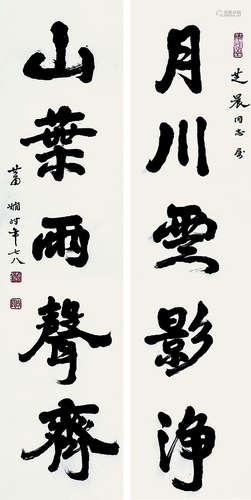 芝晨同志屬
月川雲影淨
山葉雨聲齊
蕭嫻時年七八